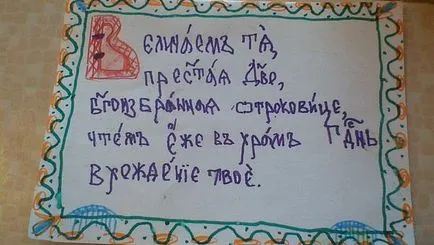 Величáемъ тѧ̀,
прест҃áѧ дв҃о,
бг҃оизбрáннаѧ отроковице,
чтéмъ є҆́же въ хрáмъ гд҃нь
вхождéнїе твоє̀.